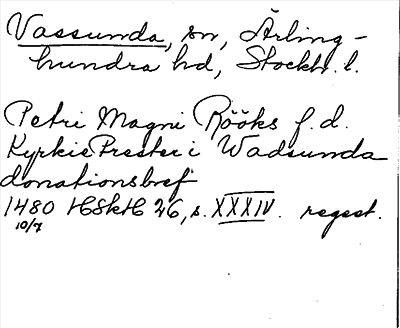 Vassunda, sn, Ärling-
hundra hd, Stockh. l.
Petri Magni Rööks f.d.
KyrkiePrester i Wadsunda
donationsbref
1480 HSkH 26, s. XXXIV. regest.
10/7